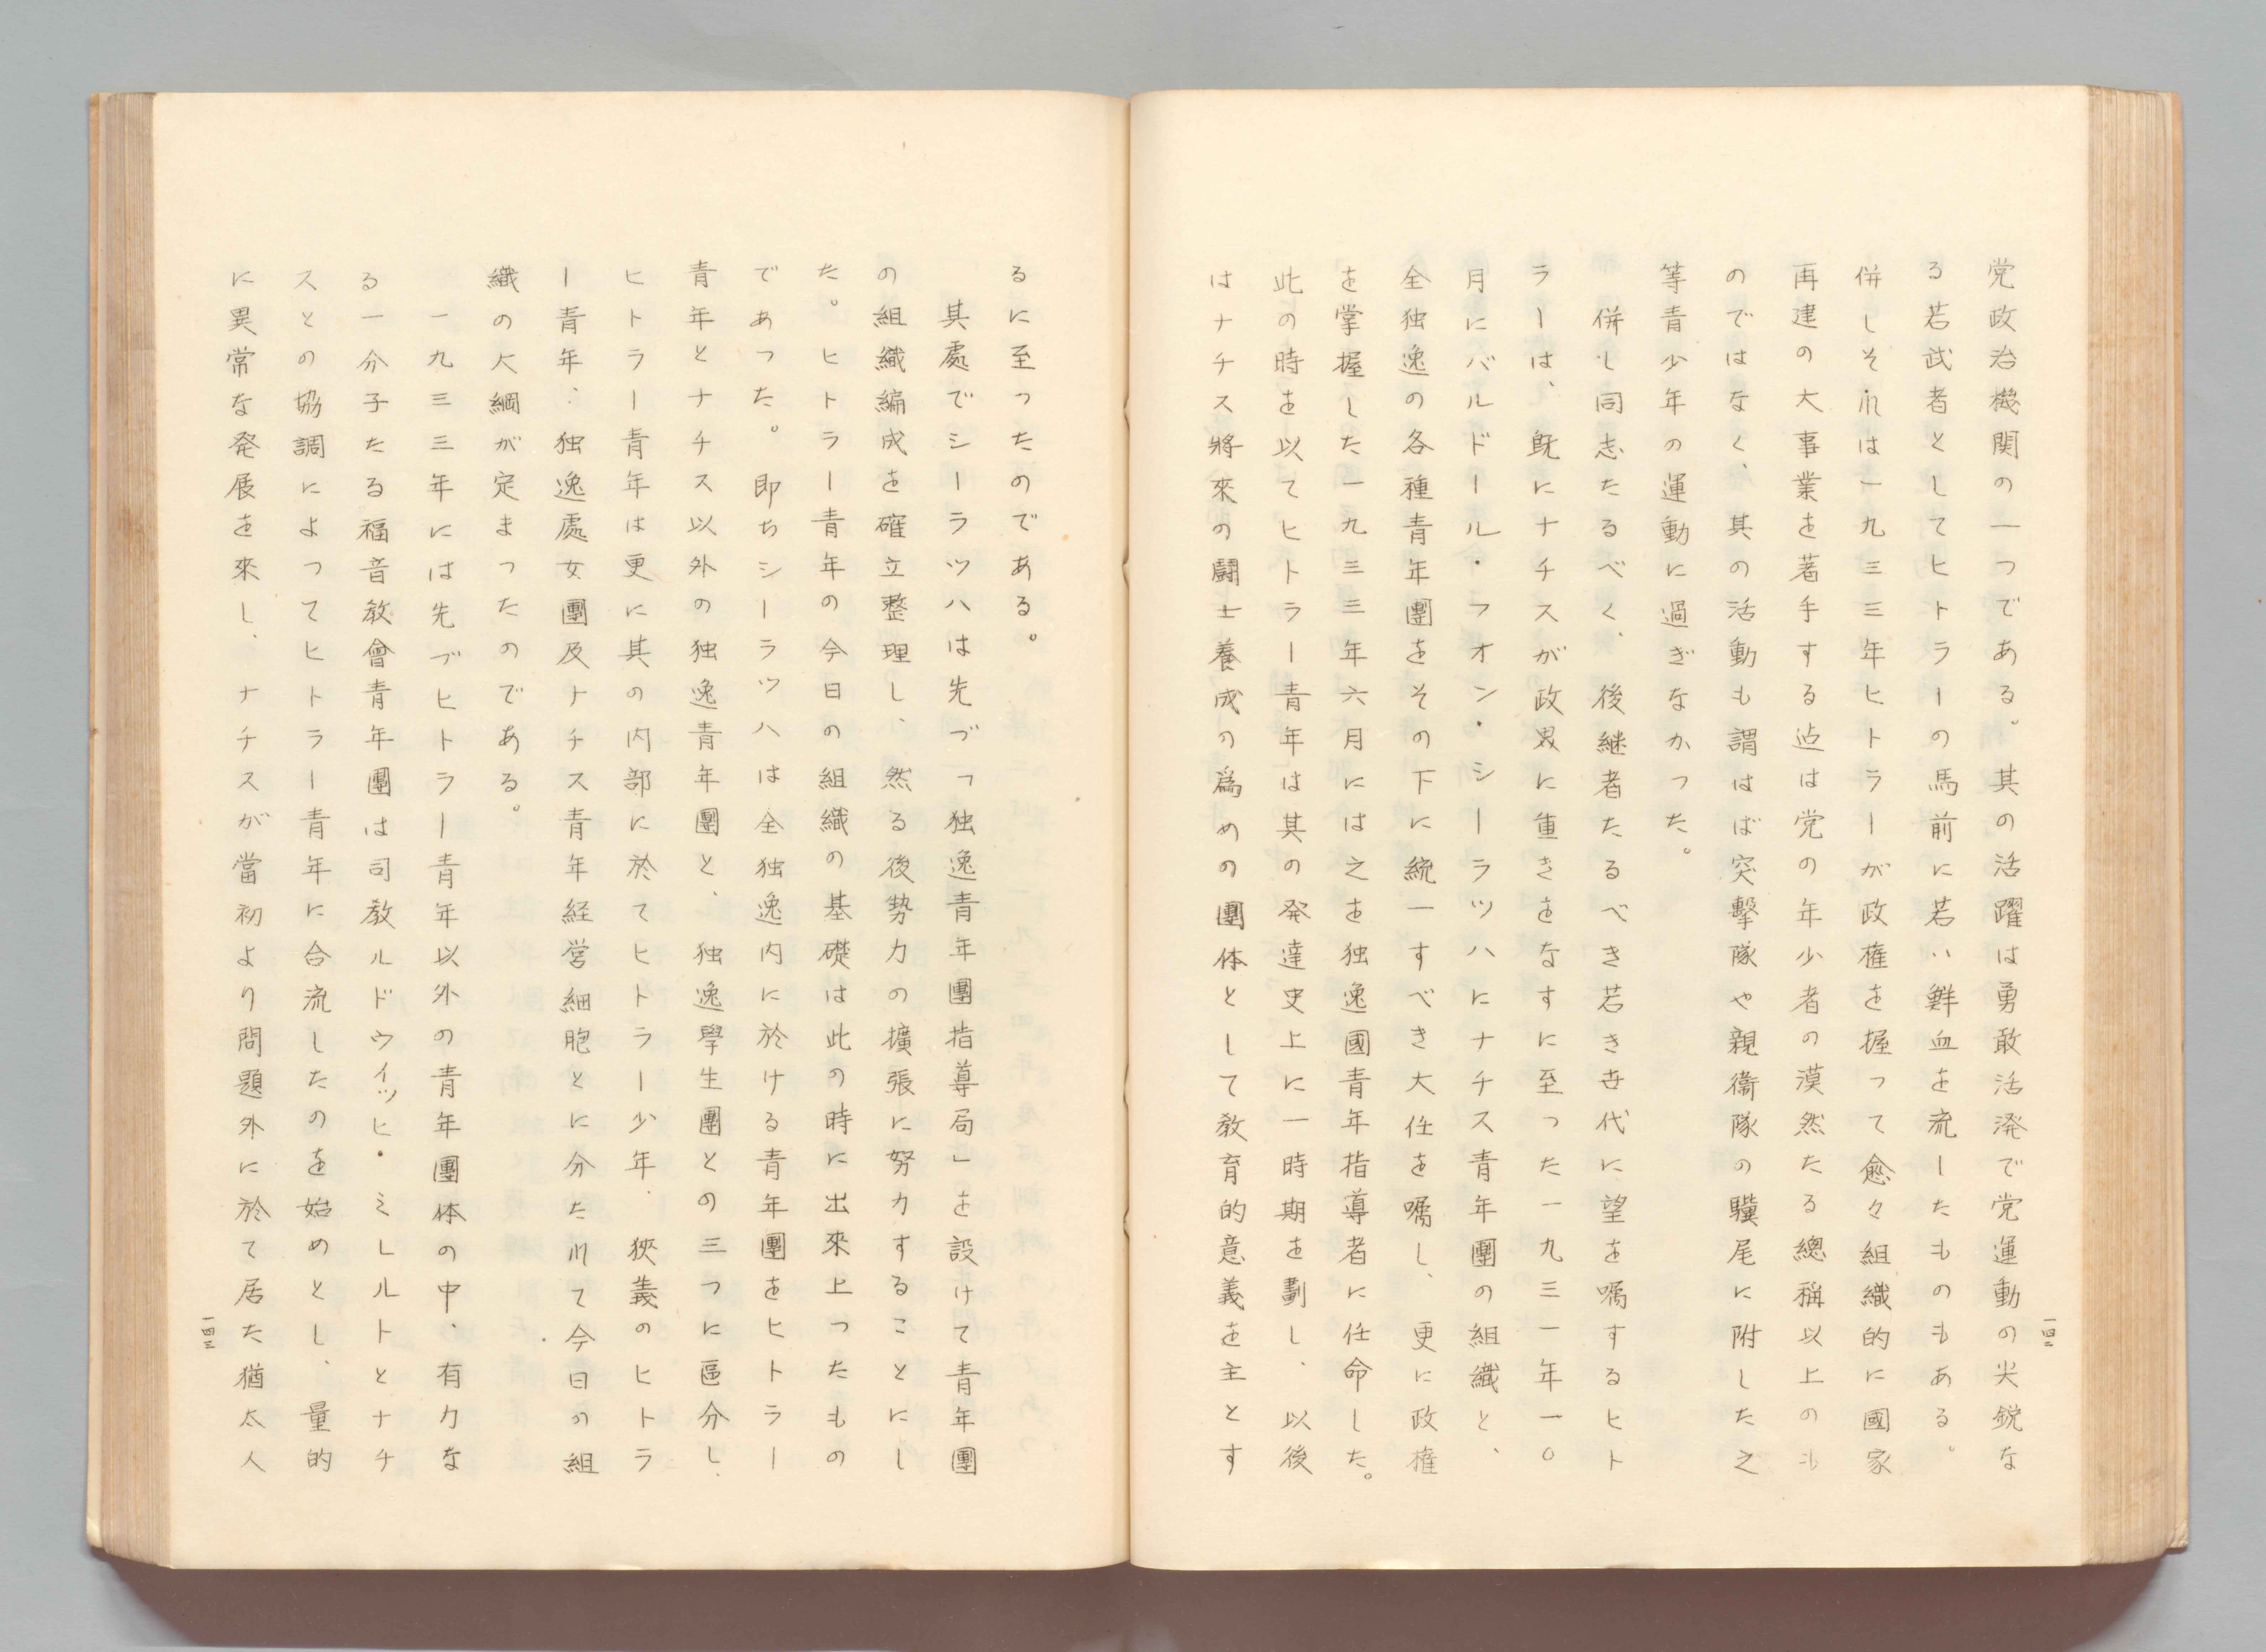 党政治機関の一つである。其の活躍は勇敢活溌で党運動の尖鋭な
る若武者としてヒトラーの馬前に若い鮮血を流したものもある。
併しそれは一九三三年ヒトラーが政権を握って愈々組織的に國家
再建の大事業を著手する迠は党の年少者の漠然たる總稱以上のも
のではなく、其の活動も謂はば突擊隊や親衞隊の驥尾に附した之
等青少年の運動に過ぎなかった。
併し同志たるべく、後継者たるべき若き世代に望を囑するヒト
ラーは、既にナチスが政界に重きをなすに至った一九三一年一〇
月にバルドール・フオン・シーラツハにナチス青年團の組織と、
全独逸の各種青年團をその下に統一すべき大任を囑し、更に政権
を掌握した一九三三年六月には之を独逸國青年指導者に任命した。
此の時を以てヒトラー青年は其の発達史上に一時期を劃し、以後
はナチス將來の闘士養成の爲めの團体として教育的意義を主とす
一四二
るに至ったのである。
其處でシーラツハは先づ「独逸青年團指導局」を設けて青年團
の組織編成を確立整理し、然る後勢力の擴張に努力することにし
た。ヒトラー青年の今日の組織の基礎は此の時に出來上ったもの
であった。即ちシーラツハは全独逸内に於ける青年團をヒトラー
青年とナチス以外の独逸青年團と、独逸學生團との三つに區分し、
ヒトラー青年は更に其の内部に於てヒトラー少年、狹義のヒトラ
ー青年、独逸處女團及ナチス青年経営細胞とに分たれて今日の組
織の大綱が定まったのである。
一九三三年には先づヒトラー青年以外の青年團体の中、有力な
る一分子たる福音教會青年團は司教ルドウイッヒ・ミレルトとナチ
スとの協調によってヒトラー青年に合流したのを始めとし、量的
に異常な発展を來し、ナチスが當初より問題外に於て居た猶太人
一四三